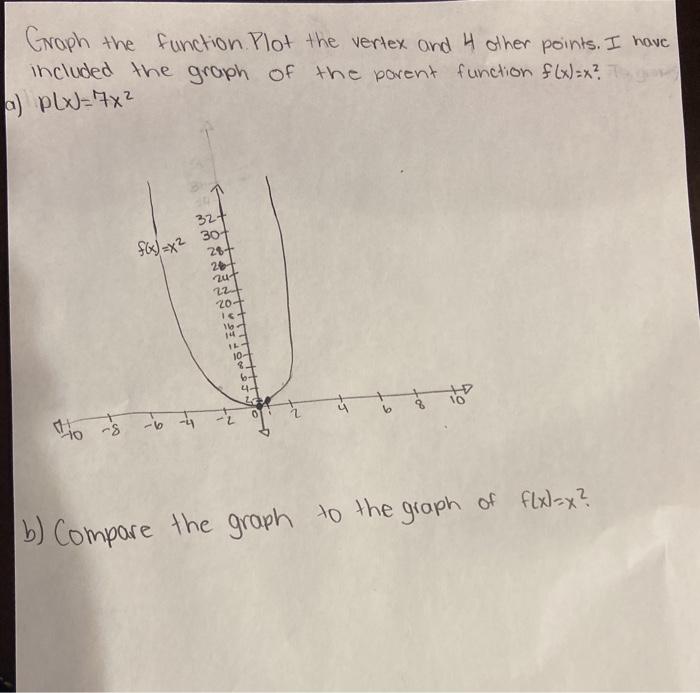 Graph the function. Plot the vertex and 4 other points. I have
included the graph of the parent function f(x)=x².
a) p(x)=7x²
f(x)=x²
32
30
28
26
24
22
20
18
16
14
12
10
8
6
4
2
-10 -8 -6 -4 -2 0 1 2 4 6 8 10
b) Compare the graph to the graph of f(x)=x².